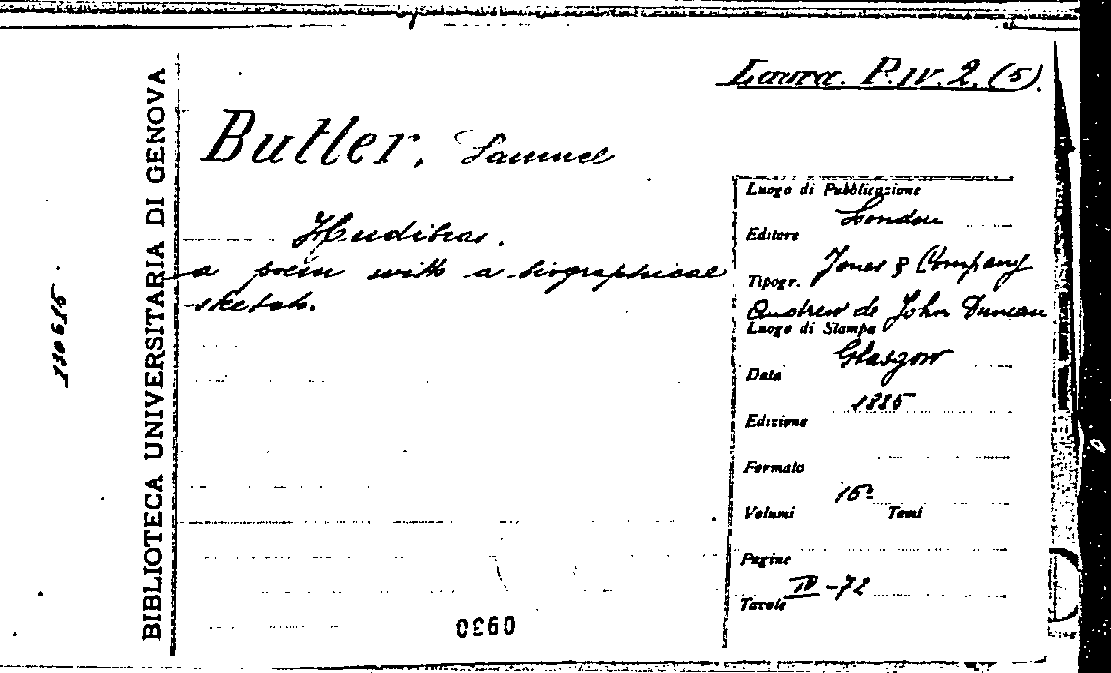 Laura. P. IV. 2. (5).
Butler, Samuel
Hudibras.
a poem with a biographical
sketch.
Luogo di Pubblicazione
London
Editore
Jones & Company
Tipogr.
Andrew de John Duncan
Luogo di Stampa
Glasgow
Data
1885
Edizione
Formato
16º
Volumi Tomi
Pagine
IV-72
Tavole
BIBLIOTECA UNIVERSITARIA DI GENOVA
0930